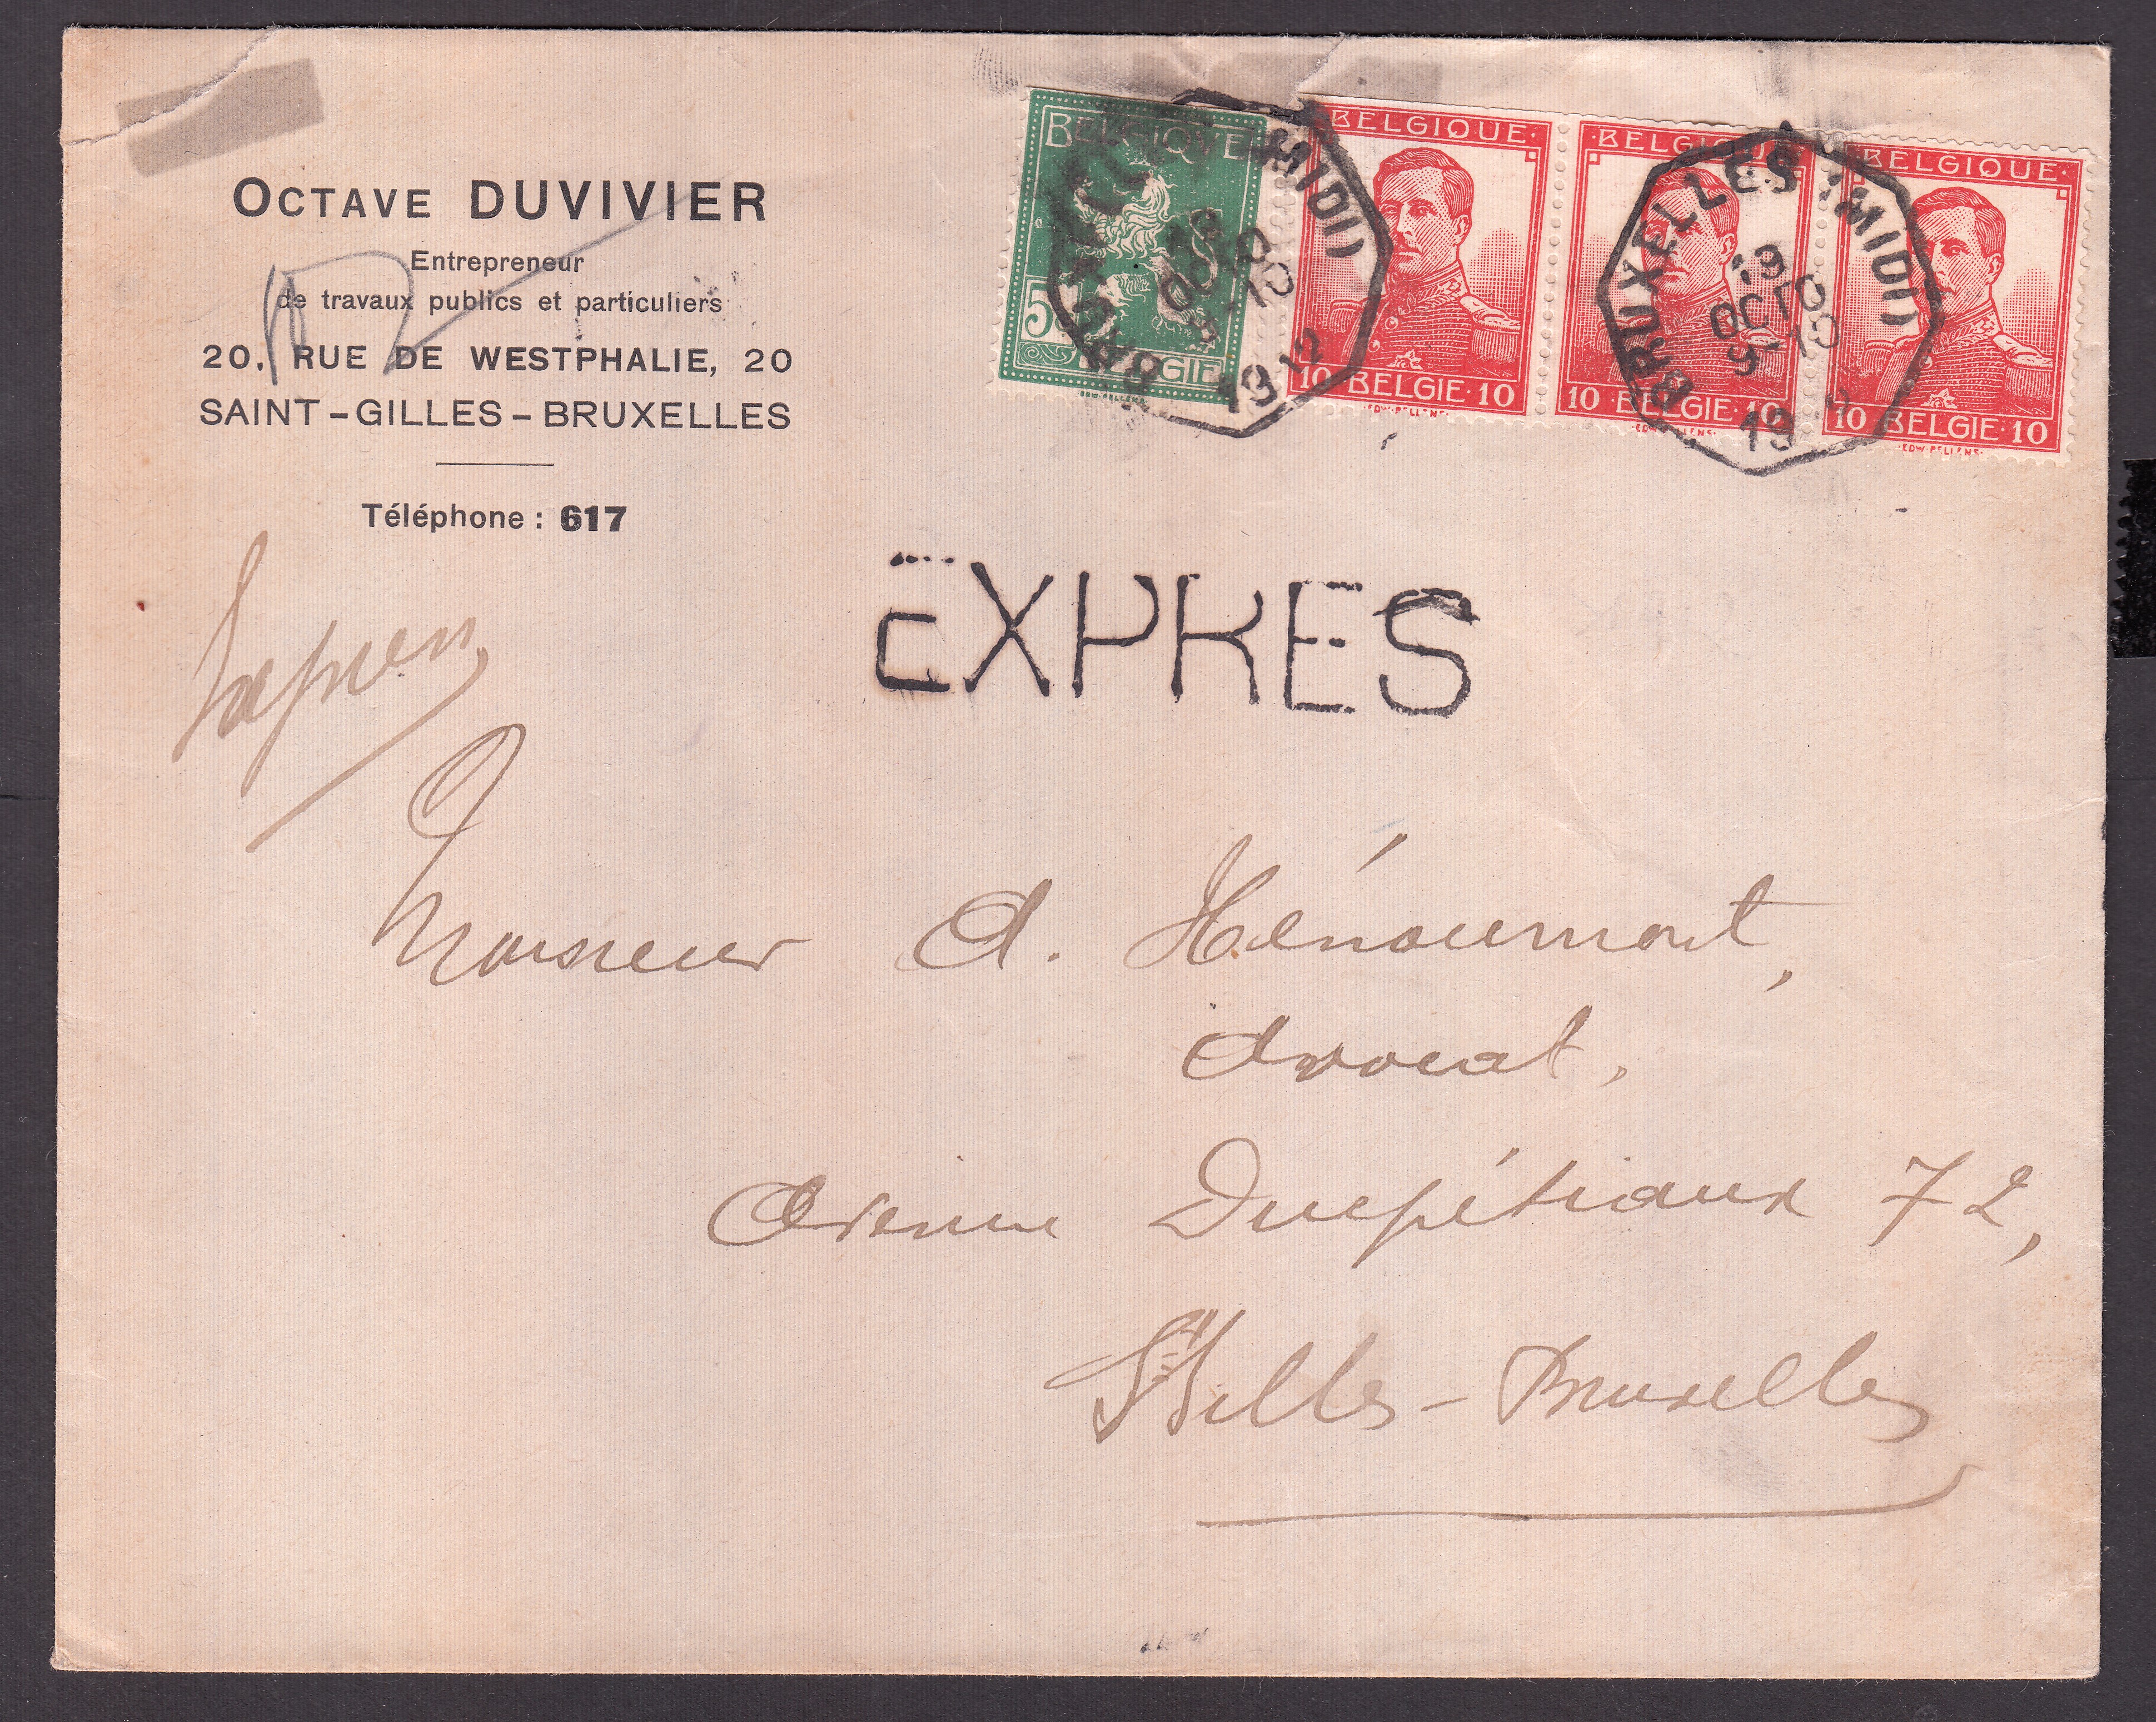 OCTAVE DUVIVIER
Entrepreneur
de travaux publics et particuliers
20, RUE DE WESTPHALIE, 20
SAINT-GILLES-BRUXELLES
Téléphone: 617
BELGIQUE
5
BELGIE
EDW. PELLENS
·BELGIQUE·
10 BELGIE·10
·EDW·PELLENS·
·BELGIQUE·
10 BELGIE·10
·EDW·PELLENS·
·BELGIQUE·
10 BELGIE·10
·EDW·PELLENS·
BRUXELLES (MIDI)
OCTO
1912
BRUXELLES (MIDI)
OCTO
19
EXPRES
Monsieur A. Hénoumont,
Avocat,
Avenue Ducpétiaux 72,
St Gilles-Bruxelles